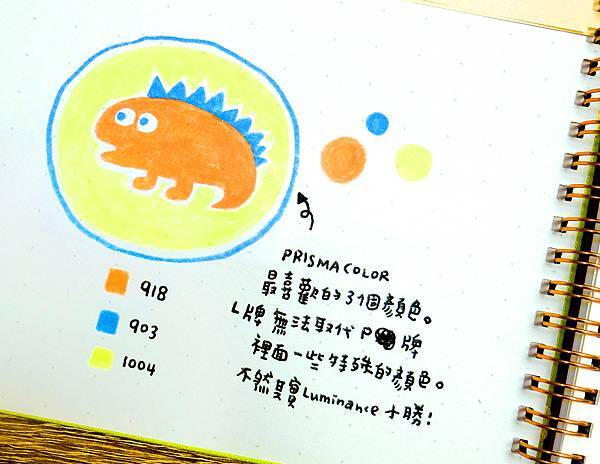 918
903
1004
PRISMACOLOR
最喜歡的3個顏色。
L牌無法取代P牌
裡面一些特殊的顏色。
不然其實Luminance小勝!